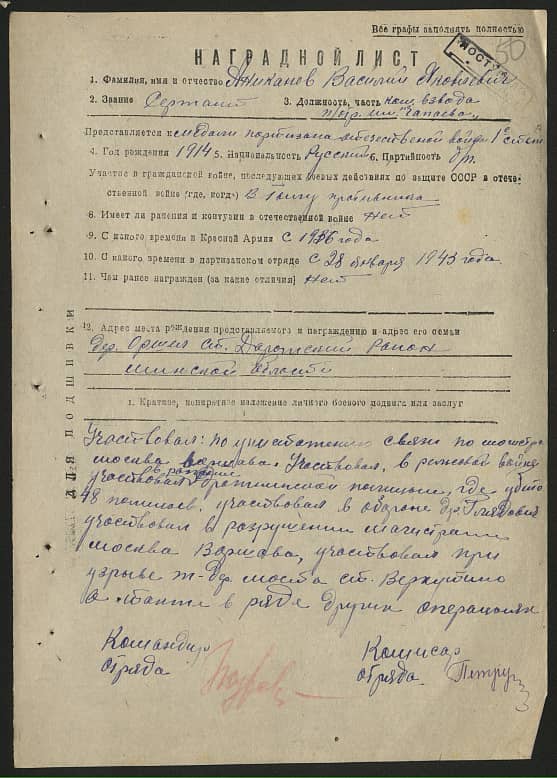 Все графы заполнять полностью
50
НАГРАДНОЙ ЛИСТ
1. Фамилия, имя и отчество Аниканов Василий Яковлевич
2. Звание Сержант 3. Должность, часть ком. взвода
п/отр. им. Чапаева
Представляется к медали партизана отечественой войны 1й степ.
4. Год рождения 1914 5. Национальность Русский 6. Партийность б/п.
Участие в гражданской войне, последующих боевых действиях по защите СССР и отече-
ственной войне (где, когда) В тылу противника
8. Имеет ли ранения и контузии в отечественной войне нет
9. С какого времени в Красной Армии с 1936 года
10. С какого времени в партизанском отряде с 28 января 1943 года.
11. Чем ранее награжден (за какие отличия) нет
12. Адрес места рождения представляемого к награждению и адрес его семьи
дер. ст. район
Минской области
ДЛЯ ПОДШИВКИ
1. Краткое, конкретное изложение личного боевого подвига или заслуг
Участвовал: по уничтожению связи по
москва варшава. Участвовал, в рельсовой войне
участвовал в полиции, где убито
48 полицаев. участвовал в обороне др.
участвовал в разрушении магистрали
москва Варшава, участвовал при
взрыве ж-др моста ст. Веркутино
а также в ряде других операциях
Командир Комисар
отряда отряда